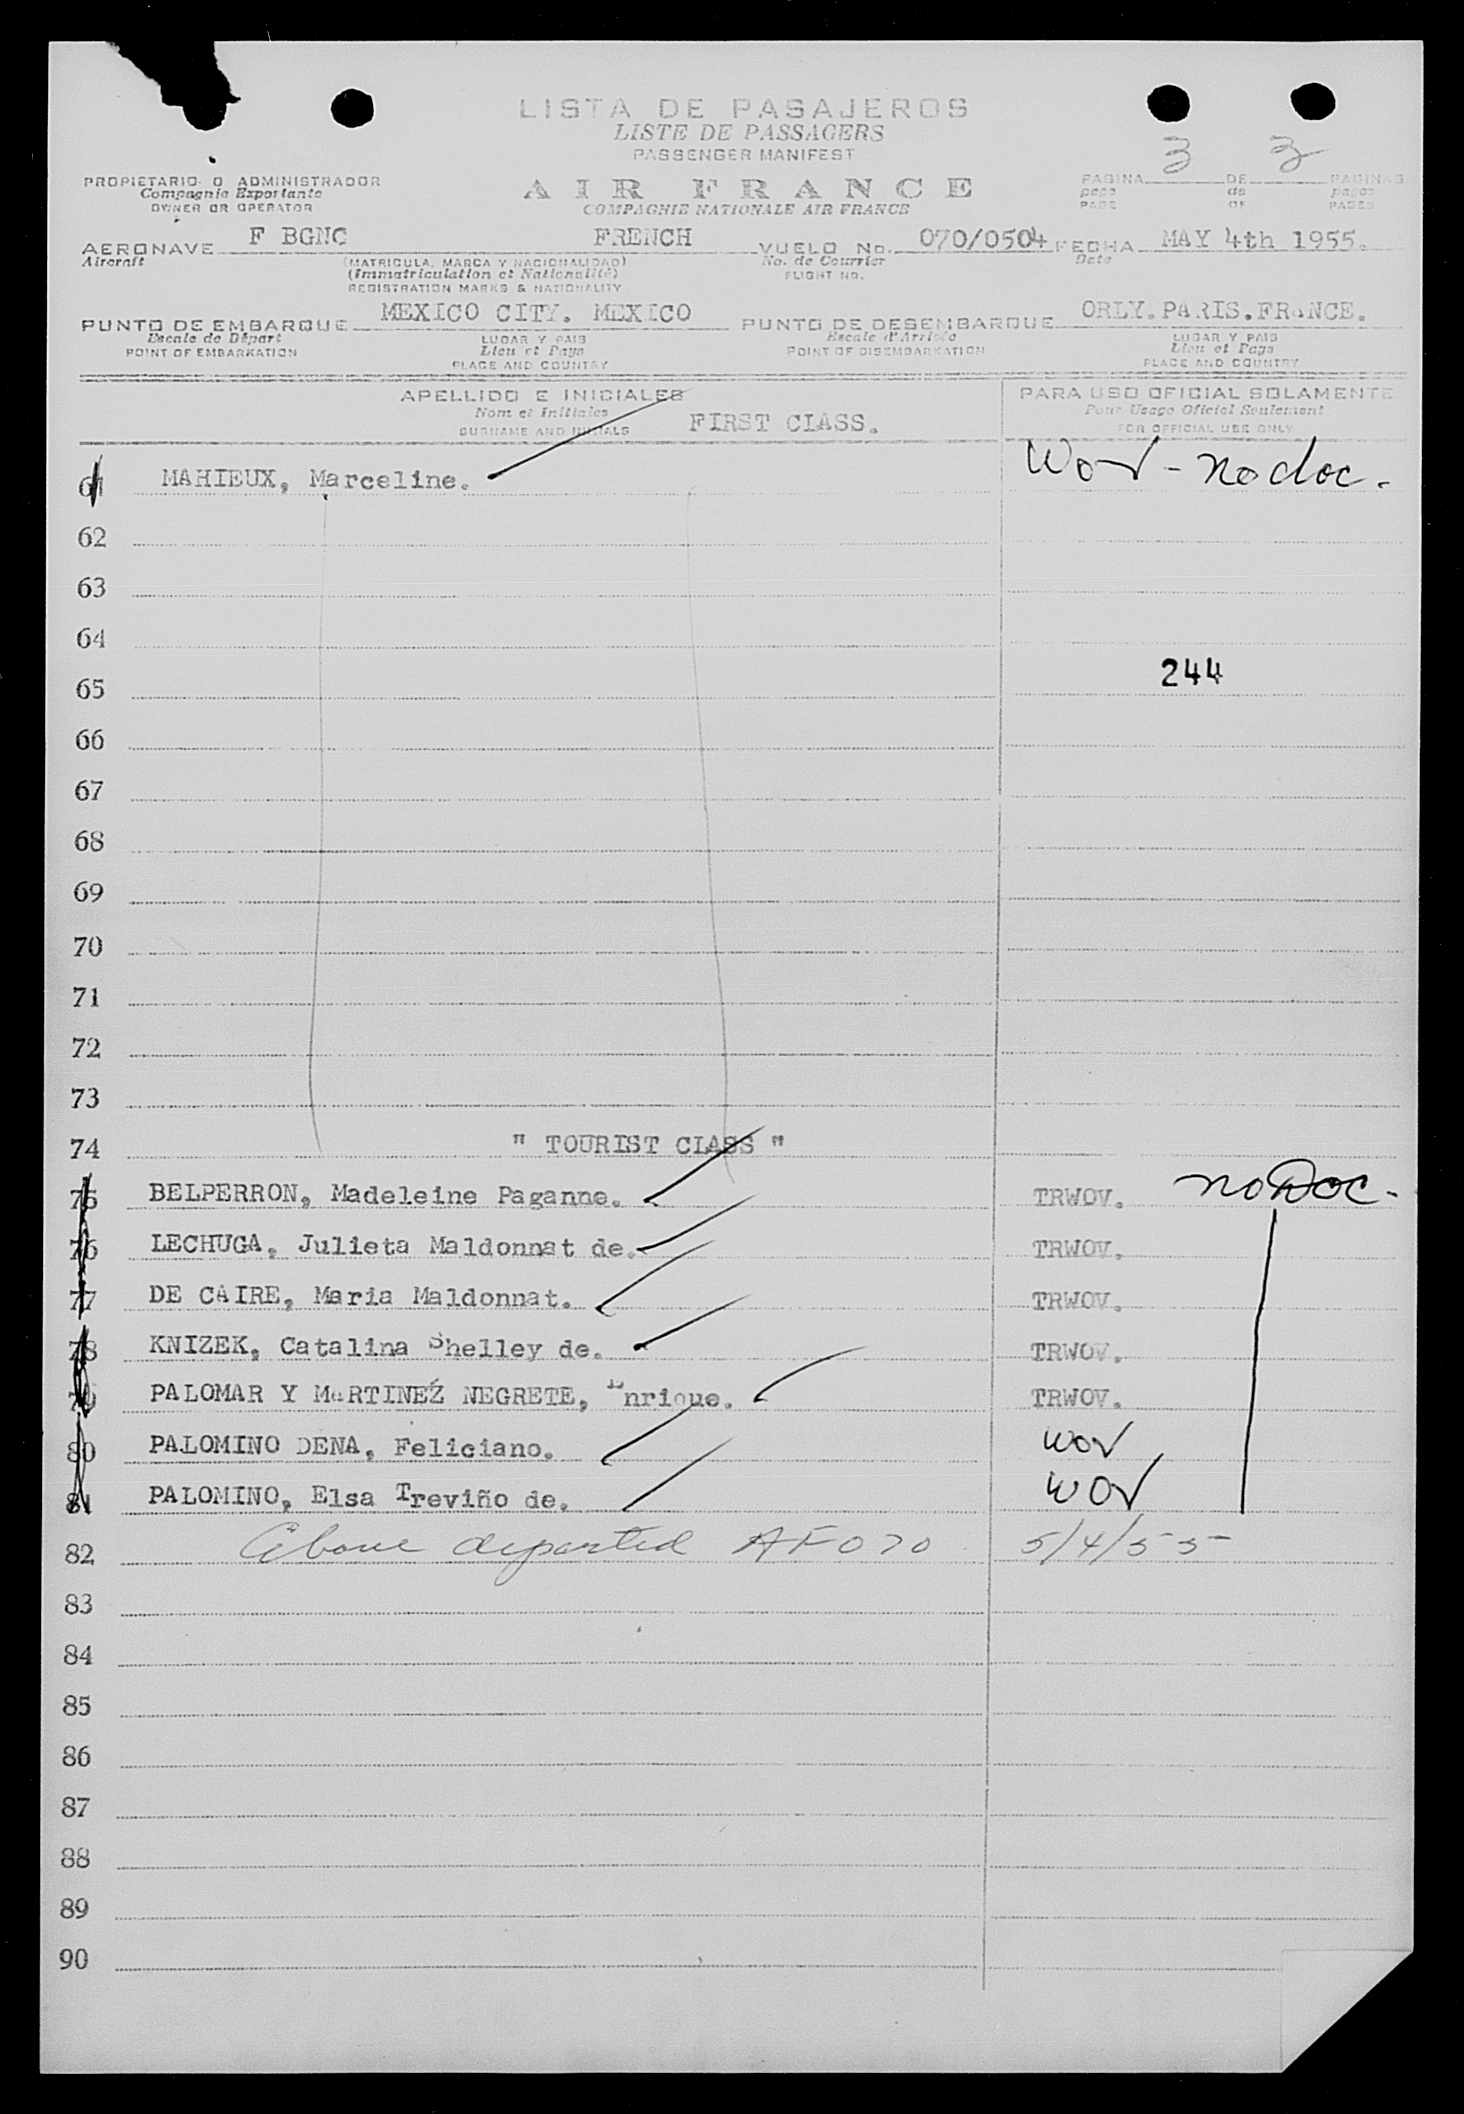 LISTA DE PASAJEROS
LISTE DE PASSAGERS
PASSENGER MANIFEST
3 3
PROPIETARIO O ADMINISTRADOR
Compagnie Exportante
OWNER OR OPERATOR
AIR FRANCE
COMPAGNIE NATIONALE AIR FRANCE
PAGINA DE PAGINAS
page de pages
PAGE OF PAGES
AERONAVE F BGNC FRENCH VUELO No. 070/0504 FECHA MAY 4th 1955.
Aircraft (MATRICULA, MARCA Y NACIONALIDAD) No. de Courrier Date
(Immatriculation et Nationalité) FLIGHT NO.
REGISTRATION MARKS & NATIONALITY
PUNTO DE EMBARQUE MEXICO CITY. MEXICO PUNTO DE DESEMBARQUE ORLY.PARIS.FRANCE.
Escale de Départ LUGAR Y PAIS Escale d'Arrivée LUGAR Y PAIS
POINT OF EMBARKATION Lieu et Pays POINT OF DISEMBARKATION Lieu et Pays
PLACE AND COUNTRY PLACE AND COUNTRY
APELLIDO E INICIALES PARA USO OFICIAL SOLAMENTE
Nom et Initiales Pour Usage Officiel Seulement
SURNAME AND INITIALS FIRST CLASS. FOR OFFICIAL USE ONLY
61 MAHIEUX, Marceline. WOV - no doc.
62
63
64
65 244
66
67
68
69
70
71
72
73
74 " TOURIST CLASS "
75 BELPERRON, Madeleine Paganne. TRWOV. no Doc.
76 LECHUGA, Julieta Maldonnat de. TRWOV.
77 DE CAIRE, Maria Maldonnat. TRWOV.
78 KNIZEK, Catalina Shelley de. TRWOV.
79 PALOMAR Y MARTINEZ NEGRETE, Enrique. TRWOV.
80 PALOMINO DENA, Feliciano. WOV
81 PALOMINO, Elsa Treviño de. WOV
82 Above departed AF070 5/4/55
83
84
85
86
87
88
89
90